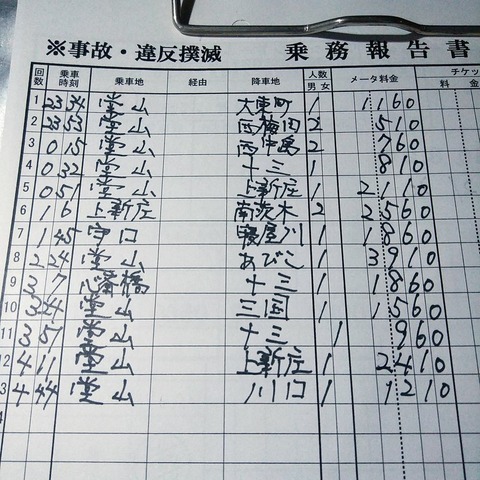 ※事故・違反撲滅 乗務報告書
回数 乗車時刻 乗車地 経由 降車地 人数 男 女 メータ料金 チケッ 料 金
1 23 34 堂山 大東町 1 1160
2 23 53 堂山 西梅田 2 510
3 0 15 堂山 西中島 2 760
4 0 32 堂山 十三 1 810
5 0 51 堂山 上新庄 1 2110
6 1 6 上新庄 南茨木 2 2560
7 1 45 守口 寝屋川 1 1860
8 2 24 堂山 あびこ 1 3910
9 3 7 心斎橋 十三 1 1860
10 3 24 堂山 三国 1 1560
11 3 51 堂山 十三 1 960
12 4 11 堂山 上新庄 1 2410
3 4 44 堂山 川口 1 1210
4